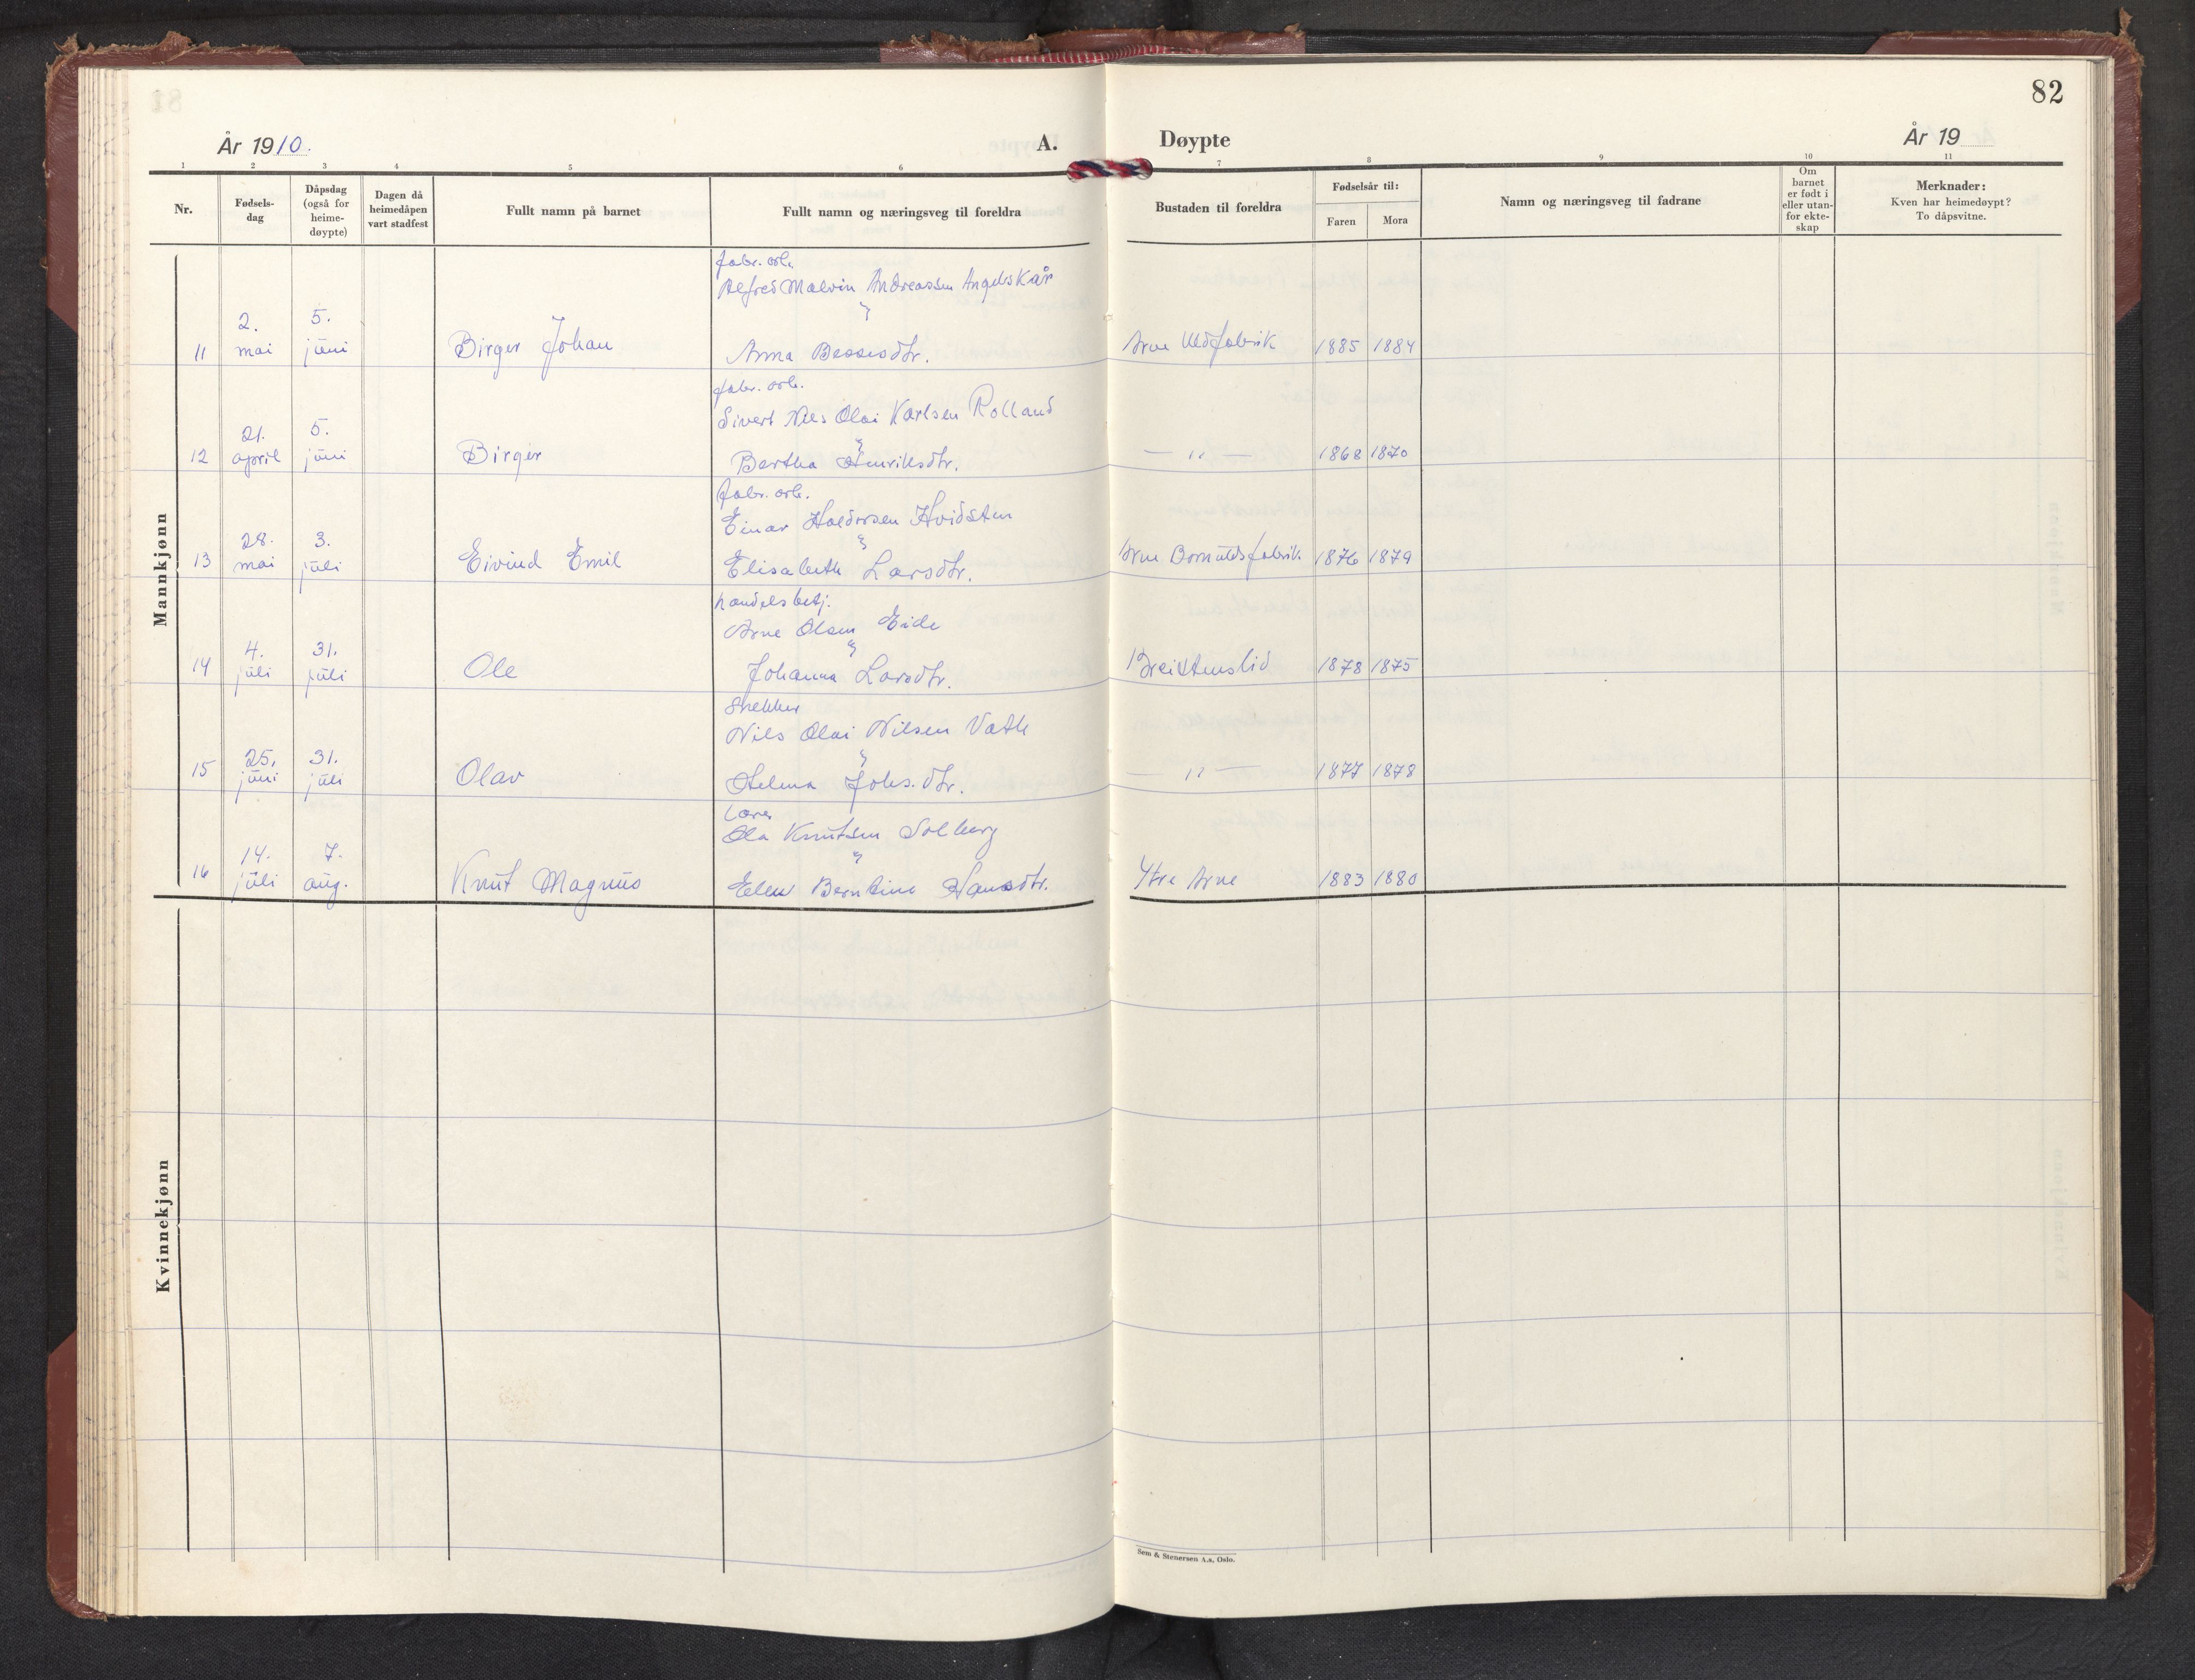 82
År 1910.
A.
Døypte
År 19
1 2 3 4 5 6 7 8 9 10 11
Nr.
Fødsels-
dag
Dåpsdag
(også for
heime-
døypte)
Dagen då
heimedåpen
vart stadfest
Fullt namn på barnet
Fullt namn og næringsveg til foreldra
Bustaden til foreldra
Fødselsår til:
Faren
Mora
Namn og næringsveg til fadrane
Om
barnet
er født i
eller utan-
for ekte-
skap
Merknader:
Kven har heimedøypt?
To dåpsvitne.
Mankjønn
fabr. arb.
Alfred Malvin Andreassen Angelskår
2. 5.
11 mai juni Birger Johan Anna Bessesdtr. Arne Uldfabrik 1885 1884
fabr. arb.
Sivert Nils Olai Karlsen Rolland
21. 5.
12 april juni Birger Bertha Henriksdtr. — " — 1868 1870
fabr. arb.
Einar Haldorsen Hvidsten
28. 3.
13 mai juli Eivind Emil Elisabeth Larsdtr. Arne Bomuldsfabrik 1876 1879
handelsbetj.
Arne Olsen Eide
4. 31.
14 juli juli Ole Johanna Larsdtr. Breistenslid 1878 1875
Snekker
Nils Olai Nilsen Vatle
25. 31.
15 juni juli Olav Helma Johs.dtr. — " — 1877 1878
Lærer
Ola Knutsen Solberg
14. 7.
16 juli aug. Knut Magnus Ellen Berntine Hansdtr. Ytre Arne 1883 1880
Kvinnekjønn
Sem & Stenersen A.s, Oslo.